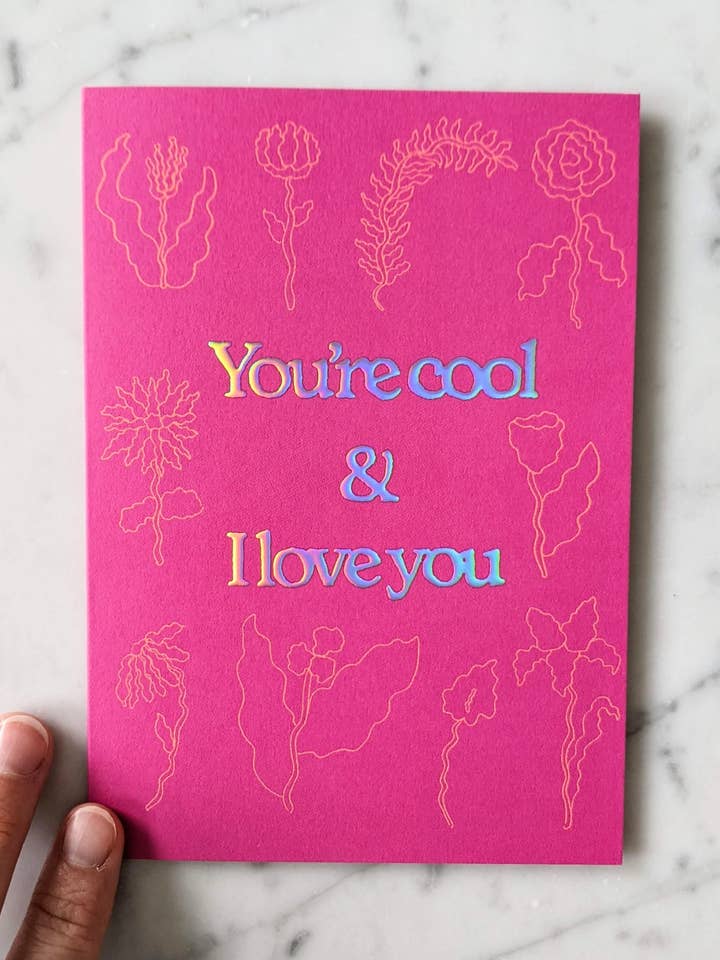 You're cool
&
I love you